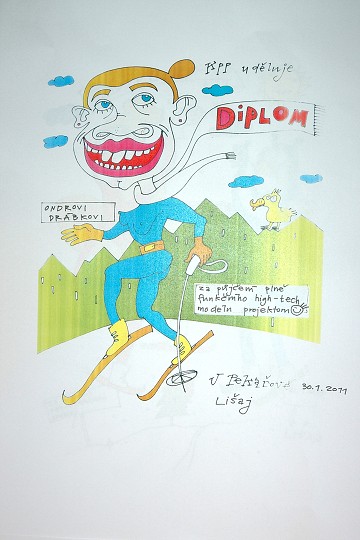 KPP uděluje
DIPLOM
ONDROVI
DRÁBKOVI
za půjčení plně
funkčního high-tech
modeln projektom
V Pekařově 30.1.2011
Lišaj